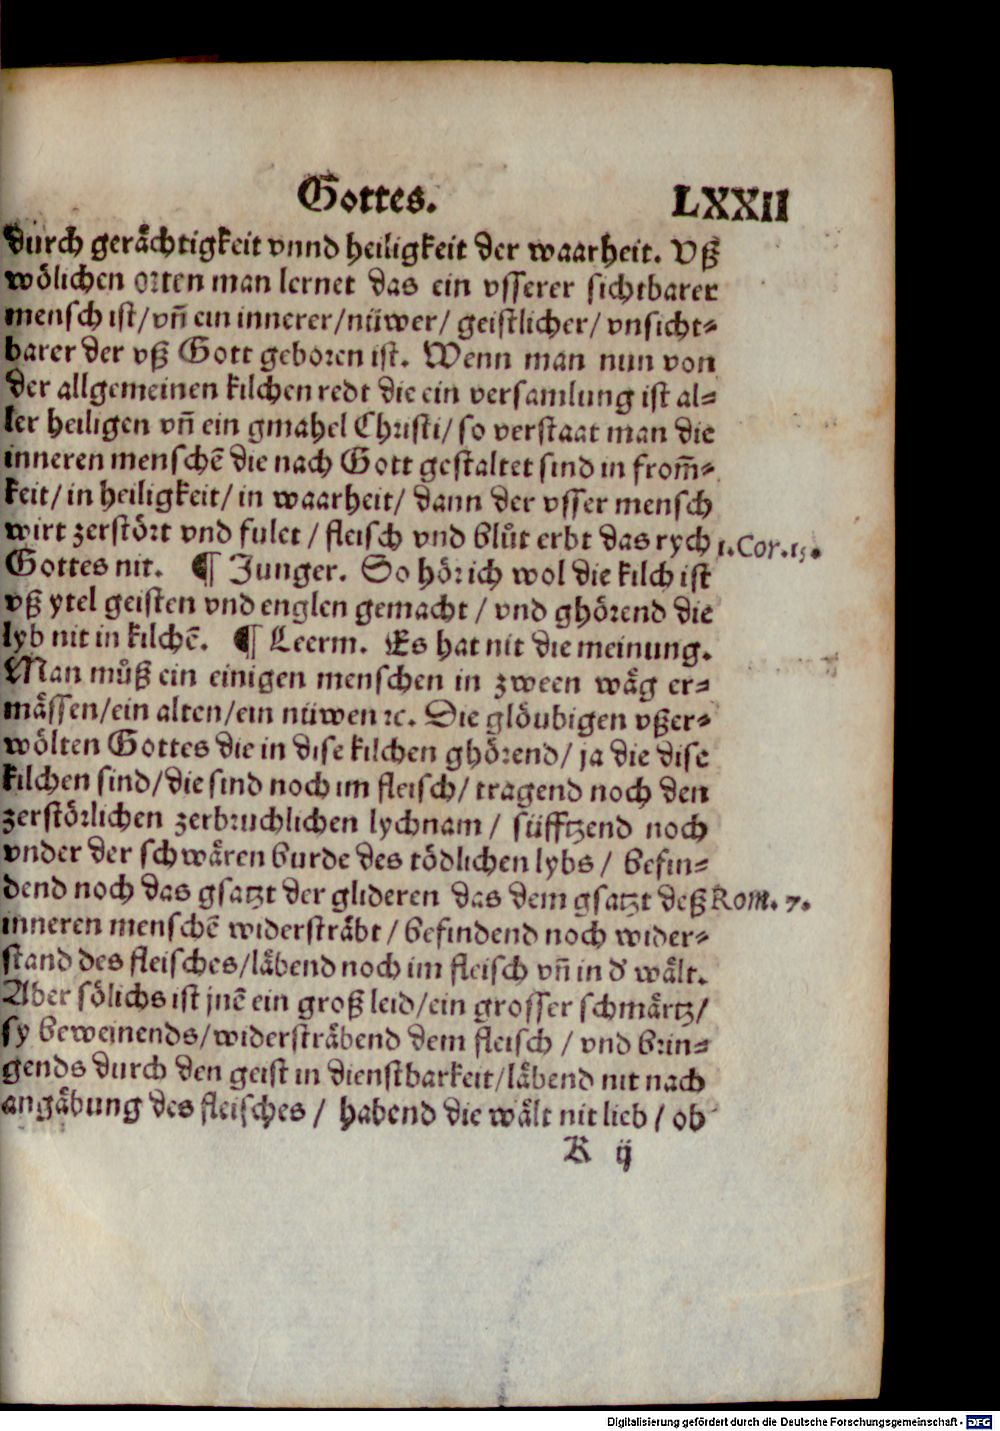 Gottes. LXXII
durch gerächtigkeit vnnd heiligkeit der waarheit. Vß
wölichen orten man lernet das ein vsserer sichtbarer
mensch ist/vñ ein innerer/nüwer/ geistlicher/ vnsicht⸗
barer der vß Gott geboren ist. Wenn man nun von
der allgemeinen kilchen redt die ein versamlung ist al⸗
ler heiligen vñ ein gmahel Christi/ so verstaat man die
inneren menschē die nach Gott gestaltet sind in from̄⸗
keit/ in heiligkeit/ in waarheit/ dann der vsser mensch
wirt zerstört vnd fulet / fleisch vnd blůt erbt das rych 1. Cor. 15.
Gottes nit. ¶ Junger. So hör ich wol die kilch ist
vß ytel geisten vnd englen gemacht / vnd ghörend die
lyb nit in kilchē. ¶ Leerm. Es hat nit die meinung.
Man můß ein einigen menschen in zween wäg er⸗
mässen/ein alten/ein nüwen ꝛc. Die glöubigen vßer⸗
wölten Gottes die in dise kilchen ghörend/ ja die dise
kilchen sind/die sind noch im fleisch/ tragend noch den
zerstörlichen zerbruchlichen lychnam / süfftzend noch
vnder der schwären burde des tödlichen lybs / befin⸗
dend noch das gsatzt der glideren das dem gsatzt deß Rom. 7.
inneren menschē widersträbt / befindend noch wider⸗
stand des fleisches/läbend noch im fleisch vñ in d' wält.
Aber sölichs ist jnē ein groß leid/ein grosser schmärtz/
sy beweinends/widersträbend dem fleisch / vnd brin⸗
gends durch den geist in dienstbarkeit/läbend nit nach
angäbung des fleisches / habend die wält nit lieb / ob
K ij
Digitalisierung gefördert durch die Deutsche Forschungsgemeinschaft - DFG